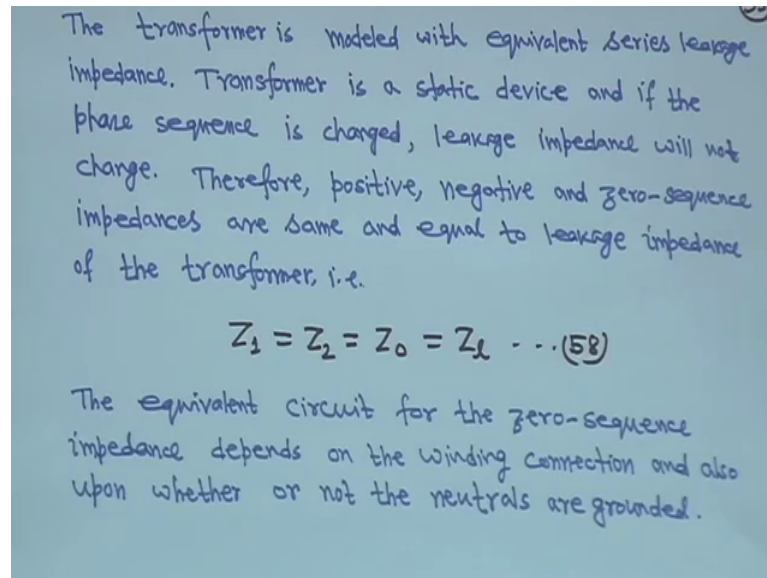 The transformer is modeled with equivalent series leakage
impedance. Transformer is a static device and if the
phase sequence is changed, leakage impedance will not
change. Therefore, positive, negative and zero-sequence
impedances are same and equal to leakage impedance
of the transformer, i.e.
Z₁ = Z₂ = Z₀ = Zₗ ---(58)
The equivalent circuit for the zero-sequence
impedance depends on the winding connection and also
upon whether or not the neutrals are grounded.